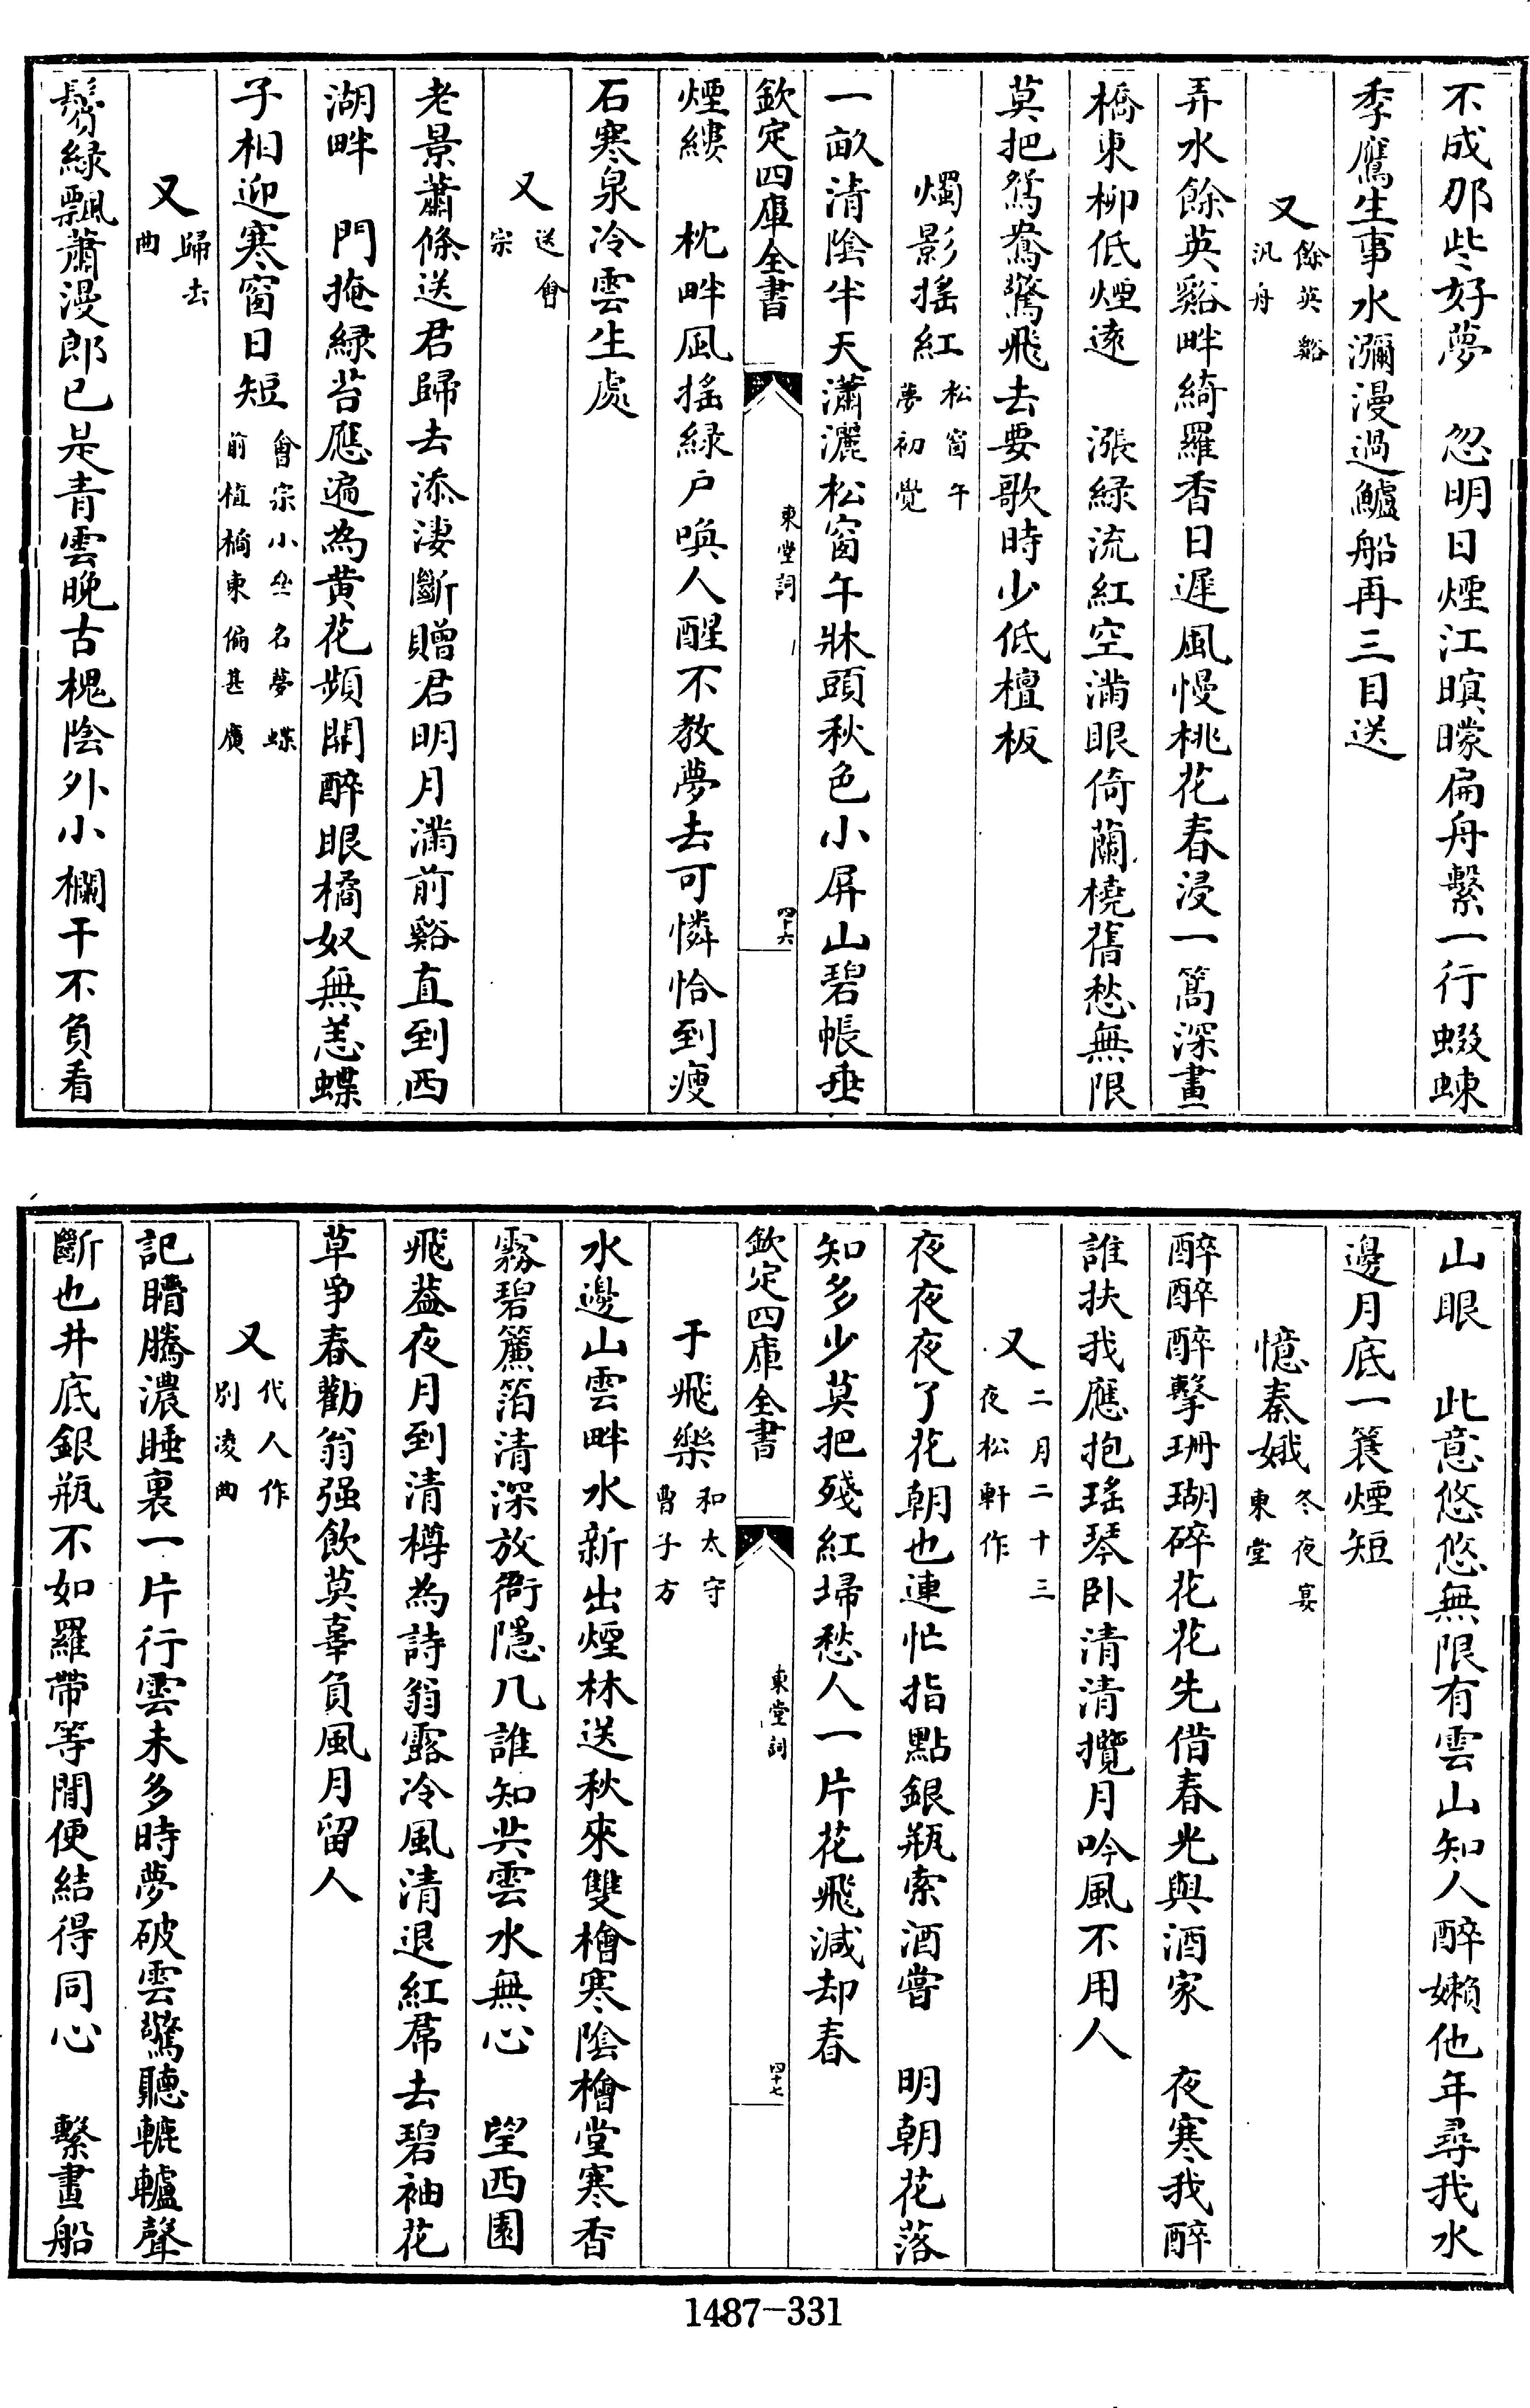 不成那些好夢　忽明日煙江暝曚扁舟繫一行螮蝀
季鷹生事水瀰漫過鱸船再三目送
又餘英谿汎舟
弄水餘英谿畔綺羅香日遲風慢桃花春浸一篙深畫
橋東柳低煙遠　漲綠流紅空滿眼倚蘭橈舊愁無限
莫把鴛鴦驚飛去要歌時少低檀板
燭影搖紅松窗午夢初覺
一畝清陰半天瀟灑松窗午牀頭秋色小屏山碧帳垂
欽定四庫全書
東堂詞
四十六
煙縷　枕畔風搖綠戶喚人醒不教夢去可憐恰到瘦
石寒泉冷雲生處
又送會宗
老景蕭條送君歸去添淒斷贈君明月滿前谿直到西
湖畔　門掩綠苔應遍為黃花頻開醉眼橘奴無恙蝶
子相迎寒窗日短會宗小齋名夢蝶前植橘東偏甚廣
又歸去曲
鬢綠飄蕭漫郎已是青雲晚古槐陰外小欄干不負看
山眼　此意悠悠無限有雲山知人醉嬾他年尋我水
邊月底一蓑煙短
憶秦娥冬夜宴東堂
醉醉醉擊珊瑚碎花花先借春光與酒家　夜寒我醉
誰扶我應抱瑤琴臥清清攬月吟風不用人
又二月二十三夜松軒作
夜夜夜了花朝也連忙指點銀瓶索酒嘗　明朝花落
知多少莫把殘紅埽愁人一片花飛減却春
欽定四庫全書
東堂詞
四十七
于飛樂和太守曹子方
水邊山雲畔水新出煙林送秋來雙檜寒陰檜堂寒香
霧碧簾箔清深放衙隱几誰知共雲水無心　望西園
飛蓋夜月到清樽為詩翁露冷風清退紅帬去碧袖花
草爭春勸翁强飲莫辜負風月留人
又代人作別凌曲
記瞢騰濃睡裏一片行雲未多時夢破雲驚聽轆轤聲
斷也井底銀瓶不如羅帶等閒便結得同心　繫畫船
1487-331